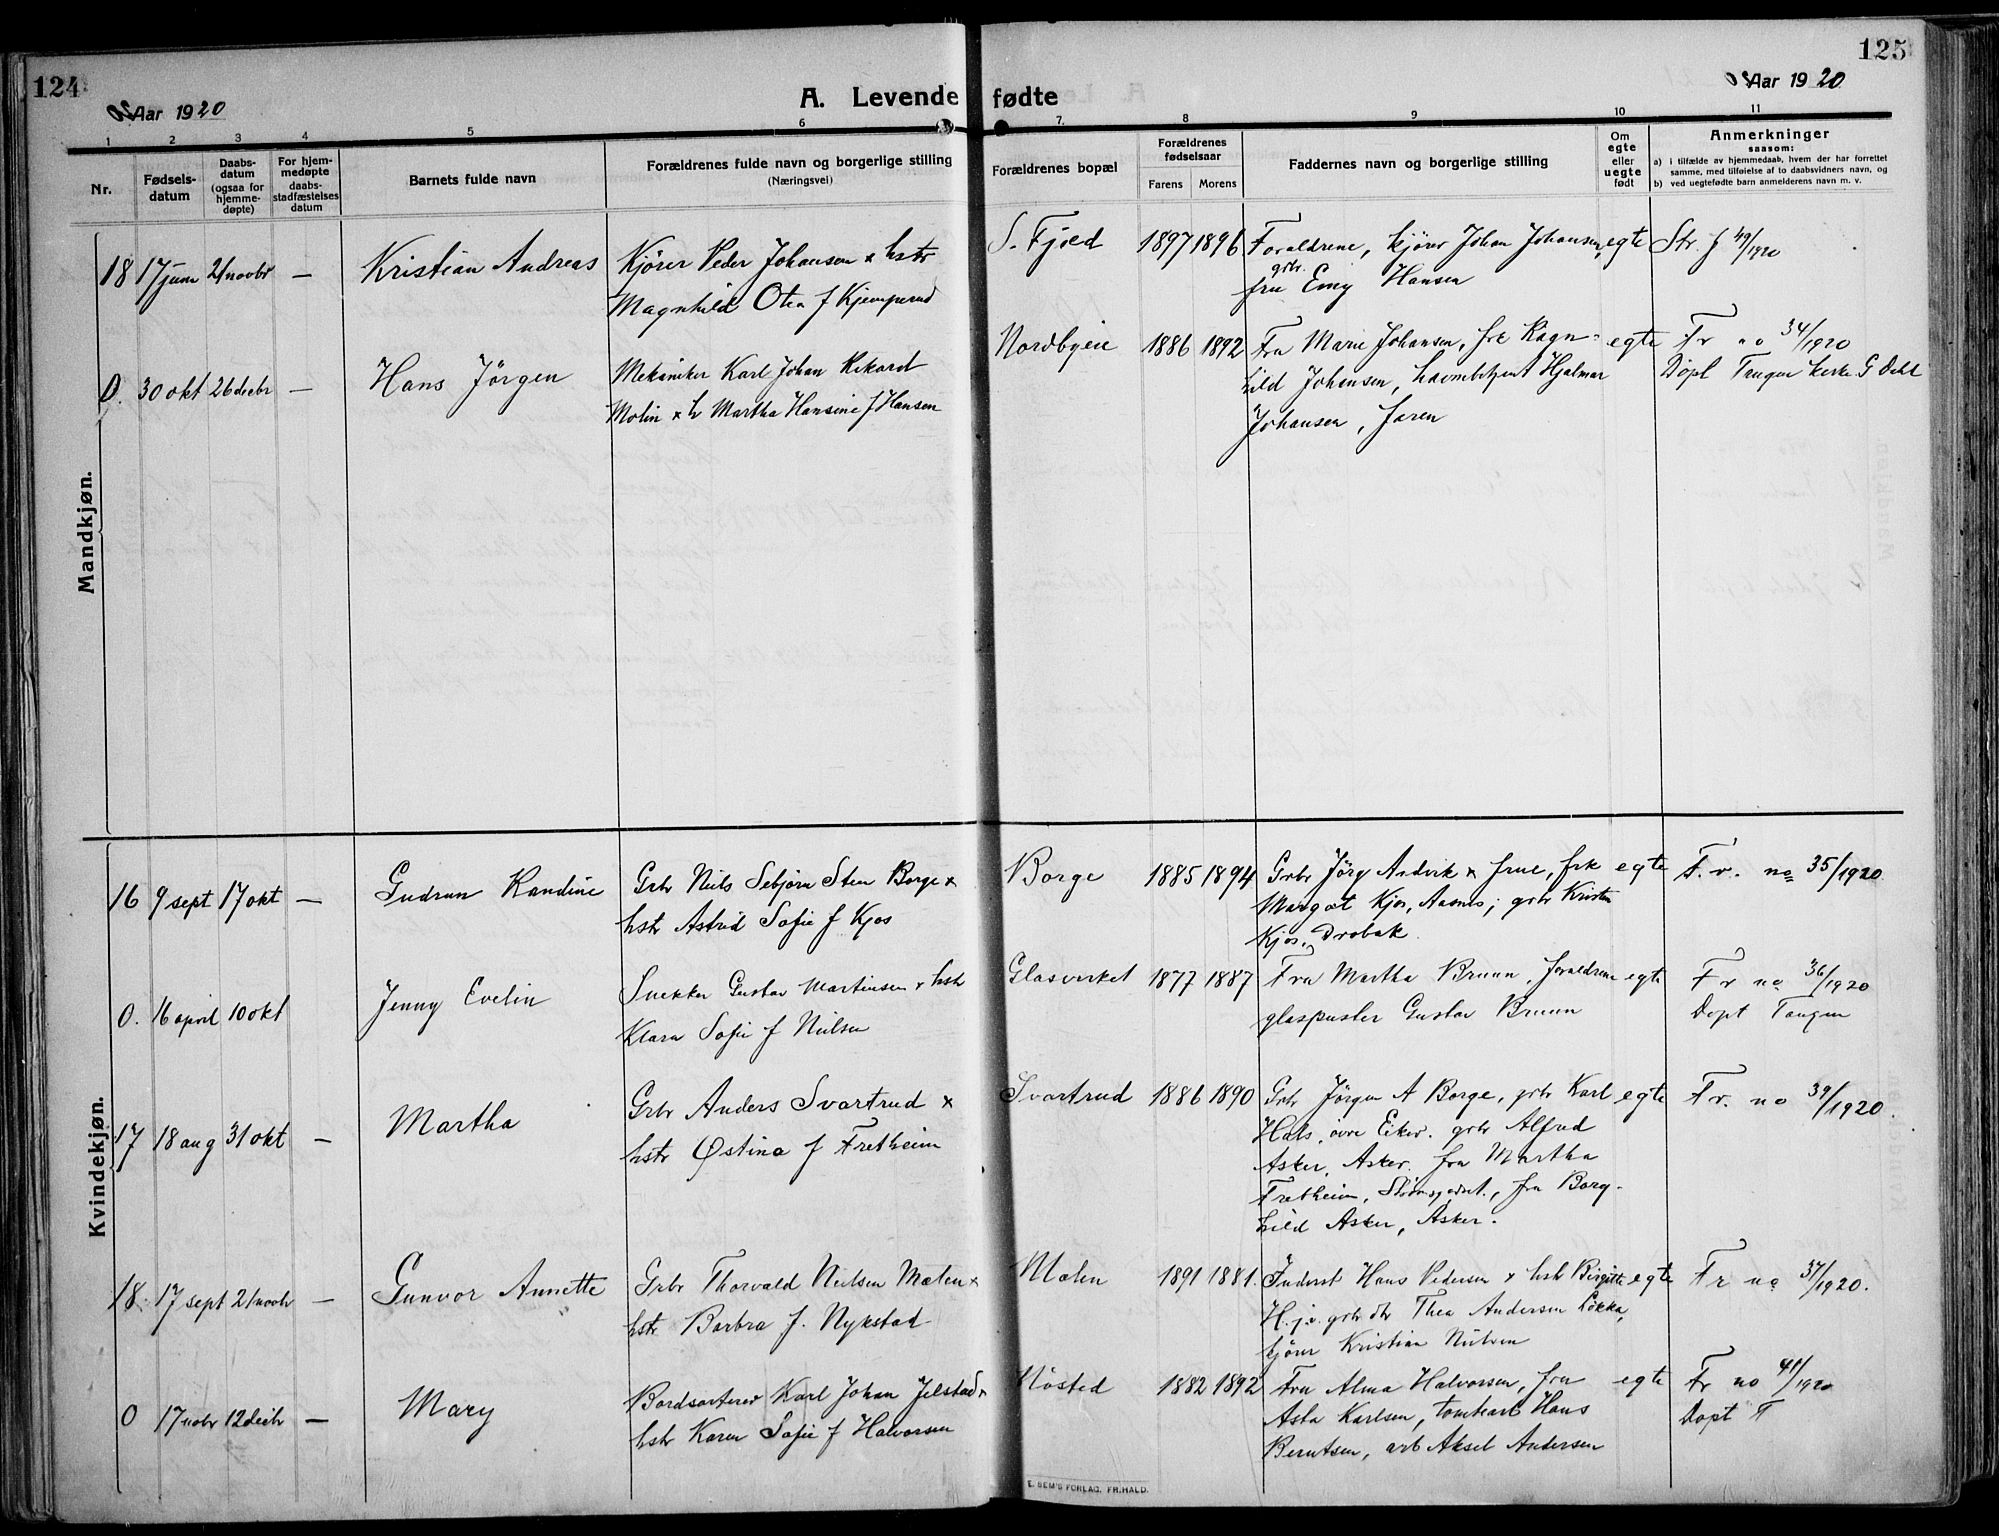 124
Aar 1920
A. Levende fødte
Aar 1920
125
1 2 3 4 5 6 7. 8 9 10 11
Nr.
Fødsels-
datum
Daabs-
datum
(ogsaa for
hjemme-
døpte)
For hjem-
medøpte
daabs-
stadfæstelses
datum
Barnets fulde navn
Forældrenes fulde navn og borgerlige stilling
(Næringsvei)
Forældrenes bopæl
Forældrenes
fødselsaar
Farens Morens
Faddernes navn og borgerlige stilling
Om
egte
eller
uegte
født
Anmerkninger
saasom:
a) i tilfælde av hjemmedaab, hvem der har forrettet
samme, med tilføielse av to daabsvidners navn, og
b) ved uegtefødte barn anmelderens navn m. v.
Mandkjøn.
18 17 juni 21 novbr — Kristian Andreas
Kjører Peder Johansen x hstr
Magnhild Otea f Kjemperud
S. Fjeld 1897 1896
Forældrene, kjører Johan Johansen,
grbr.
fru Emy Hansen
egte
Str. f 49/1920
0. 30 okt 26 decbr — Hans Jörgen
Mekaniker Karl Johan Rikard
Molin x h Martha Hansine f Hansen
Nordbyeie 1886 1892
Fru Marie Johansen, frk Ragn-
hild Johansen, havnebetjent Hjalmar
Johansen, faren
egte
Fr no 34/1920
Döpt Tangen kirke G Dehl
Kvindekjøn.
16 9 sept 17 okt — Gudrun Randine
Grbr Niels Sebjörn Sten Borge x
hstr Astrid Sofie f Kjos
Borge 1885 1894
Grbr Jörg Ardvik x frue, frk
Margot Kjos, Aasnes; grbr Kristen
Kjos, Drobak
egte
F. v. no 35/1920
0. 16 april 10 okt Jenny Evelin
Snekker Gustav Martinsen x hstr
Klara Sofie f Nielsen
Glasverket 1877 1887
Fru Martha Bruun, forældrene
glaspuster Gustav Bruun
egte
Fr no 36/1920
Döpt Tangen
17 18 aug 31 okt — Martha
Grbr Anders Svartrud x
hstr Østina f Fretheim
Svartrud 1886 1890
Grbr Jörgen A Borge, grbr Karl
Hals, övre Eiker. grbr Alfred
Asker, Asker. fru Martha
Fretheim, fru Borg-
hild Asker, Asker.
egte
Fr. no 39/1920.
18. 17 sept 21 novbr — Gunvor Annette
Grbr Thorvald Nielsen Mælen x
hstr Barbra f. Nykstad
Mælen 1891 1881.
Inderst Hans Pedersen x hstr Birgitte
H. j. v. grbr dtr Thea Andersen Lökka,
kjører Kristian Nielsen
egte
Fr no 37/1920.
0 17 nobr 12 decbr — Mary
Bordsorterer Karl Johan Jelstad x
hstr Karen Sofie f Halvorsen
Nösted 1882 1892
Fru Alma Halvorsen, fru
Asta Karlsen, tomtearb Hans
Berntsen, arb Aksel Andersen
egte
Fr no 41/1920
Döpt T
E. SEM'S FORLAG. FR.HALD.